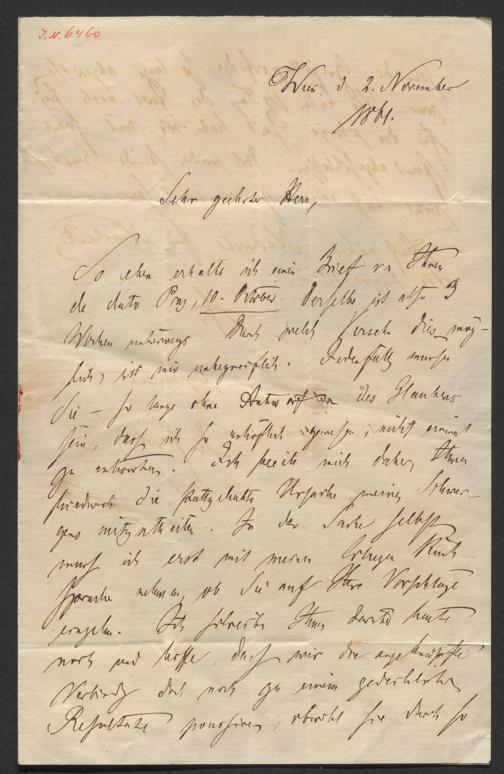 J.N. 6460
Wien d 2. November
1861.
Sehr geehrter Herr,
So eben erhalte ich einen Brief von Ihnen
de dato Prag, 10. October. Derselbe ist also 3
Wochen unterwegs. Durch welch Versehen dies mög-
lich, ist mir unbegreiflich. Jedenfalls mussten
Sie – so lange ohne Antwort des Glaubens
sein, dass ich so unhöflich gewesen, nicht einmal
zu antworten. Ich beeile mich daher, Ihnen
die stattgehabte Ursache meines Schwei-
gens mitzutheilen. In der Sache selbst
muss ich erst mit meinem Rück
sprache nehmen, ob Sie auf Ihre Vorschläge
eingehen. Ich schreibe Ihnen heute
noch und hoffe, dass wir die angeknüpfte
Verbindg doch noch zu einem gedeihlichen
Resultate poussiren, obwohl sie durch so